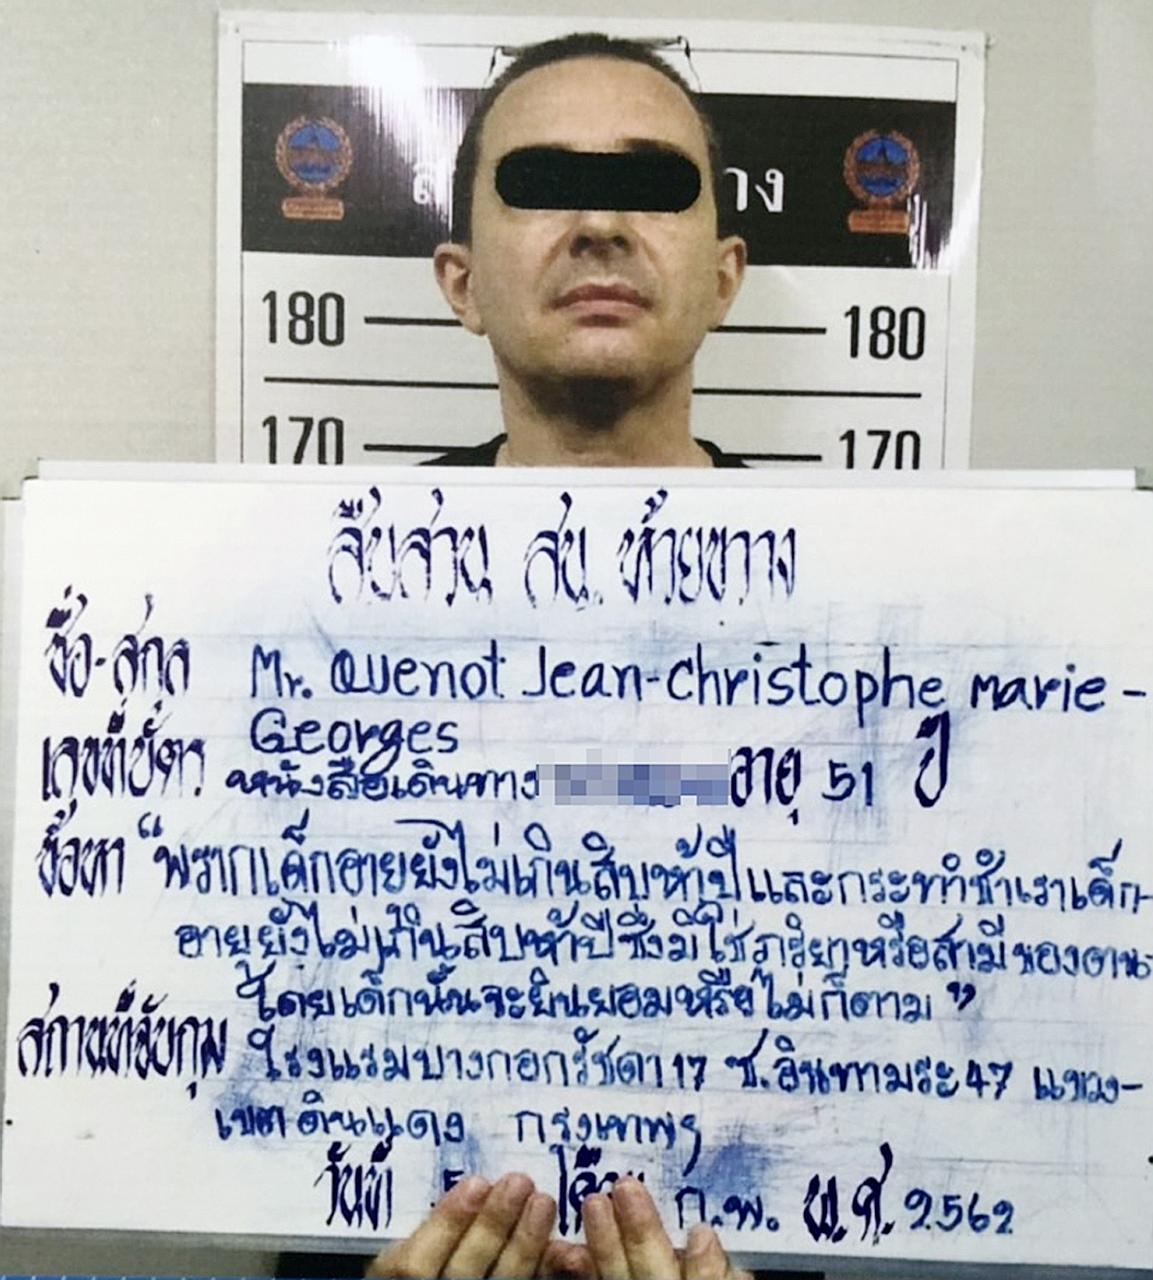 วาง
180 180
170 170
สืบสวน สน. ห้วยขวาง
ชื่อ-สกุล Mr. Quenot Jean-Christophe Marie-
Georges
เลขที่บัตร หนังสือเดินทาง อายุ 51 ปี
ข้อหา "พรากเด็กอายุยังไม่เกินสิบห้าปีและกระทำชำเราเด็ก-
อายุยังไม่เกินสิบห้าปีซึ่งมิใช่ภริยาหรือสามีของตน
โดยเด็กนั้นจะยินยอมหรือไม่ก็ตาม"
สถานที่จับกุม โรงแรมบางกอกรัชดา 17 ซ.อินทามระ 47 แขวง-
เขตดินแดง กรุงเทพฯ
วันที่ 5 เดือน ก.พ. พ.ศ. 2562